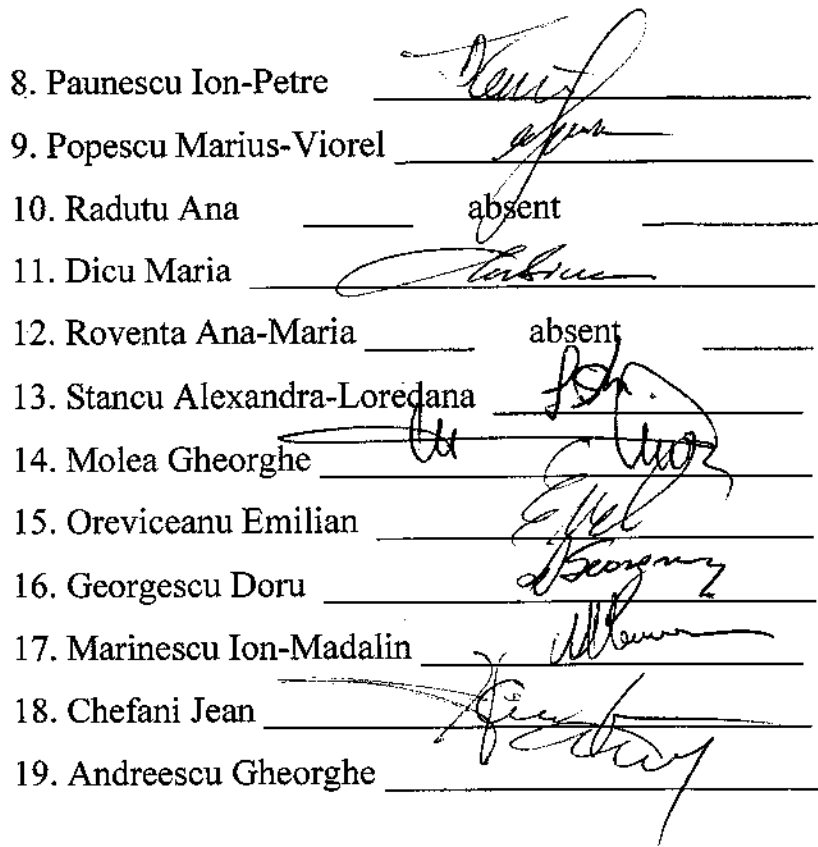 8. Paunescu Ion-Petre
9. Popescu Marius-Viorel
10. Radutu Ana absent
11. Dicu Maria
12. Roventa Ana-Maria absent
13. Stancu Alexandra-Loredana
14. Molea Gheorghe
15. Oreviceanu Emilian
16. Georgescu Doru
17. Marinescu Ion-Madalin
18. Chefani Jean
19. Andreescu Gheorghe